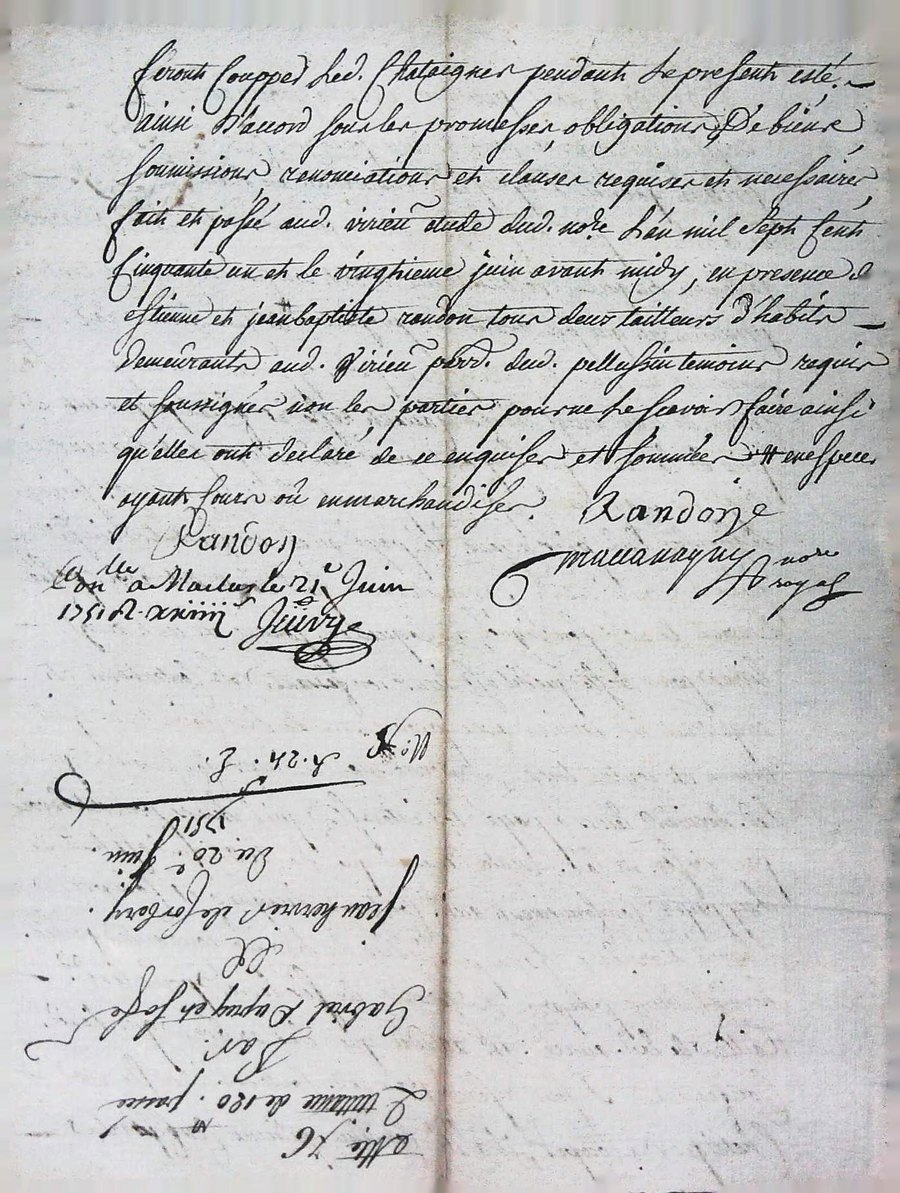 feront couppes led. Chataignes pendant le present esté.
ainsi d'accord sous les promesses obligations De biens
soumissions renonciations et clauses requises et necessaires
fait et passé aud. virieu etude dud. nore. L'an mil sept cent
cinquante un et le vingtieme juin avant midy, en presence d
estienne et jean baptiste randon tous deux tailleurs d'habits
demeurants aud. Virieu parr. dud. pellussin temoins requis
et soussignés non les parties pour ne le scavoir faire ainsi
qu'elles ont declaré de ce enquises et sommées # en espece
ayant cours ou en marchandise.
Randon
Randon
nore
royal
Con.lle a Maclas le 21e Juin
1751 R. xxiiii
N.o
s. 24. f.
1751
Du 20.e Juin
jean hervier de
Et
Gabriel Dupuy et
Par.
de 120. passée
76